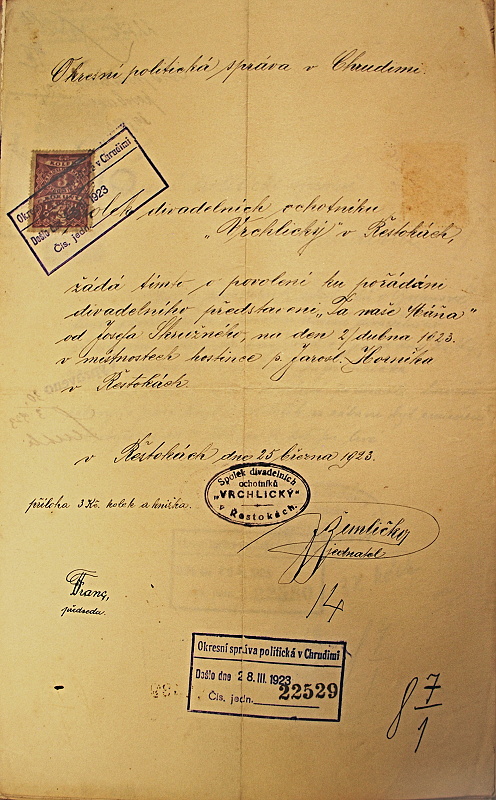 Okresní politická správa v Chrudimi.
Okresní správa politická v Chrudimi
Došlo dne 1923
Čís. jedn.
Spolek divadelních ochotníku
„Vrchlický" v Řestokách,
žádá tímto o povolení ku pořádání
divadelního představení „Ta naše Máňa"
od Josefa Skružného, na den 2/dubna 1923.
v místnostech hostince p. Jarosl. Horníka
v Řestokách.
v Řestokách dne 25 března 1923.
Spolek divadelních
ochotníků
„VRCHLICKÝ"
v Řestokách.
příloha 3 Kč. kolek a knížka.
Žemlička
jednatel
Franc,
předseda.
14
Okresní správa politická v Chrudimi
Došlo dne 28. III. 1923
Čís. jedn. 22529
8 7/1